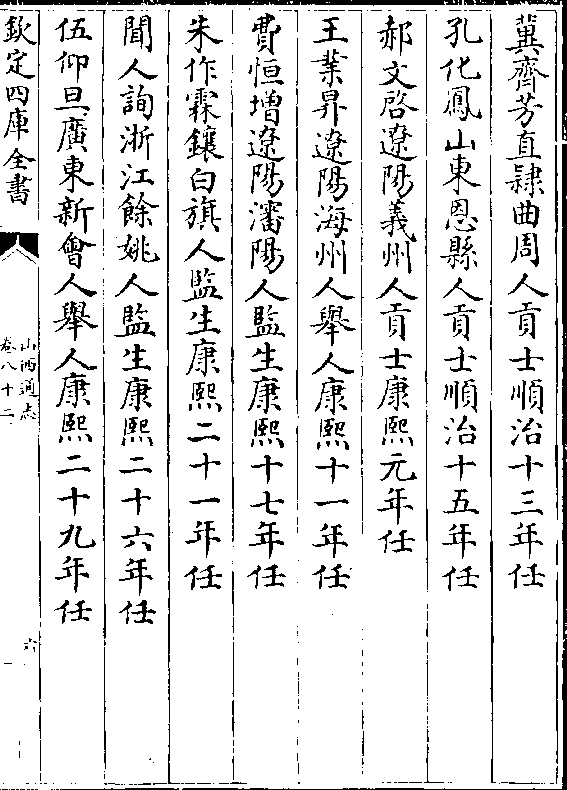 冀齊芳直隸曲周人貢士順治十三年任
孔化鳳山東恩縣人貢士順治十五年任
郝文啓遼陽義州人貢士康熙元年任
王業昇遼陽海州人舉人康熙十一年任
費恒增遼陽瀋陽人監生康熙十七年任
朱作霖鑲白旗人監生康熙二十一年任
聞人詢浙江餘姚人監生康熙二十六年任
伍仰旦廣東新會人舉人康熙二十九年任
欽定四庫全書
山西通志
卷八十二
六